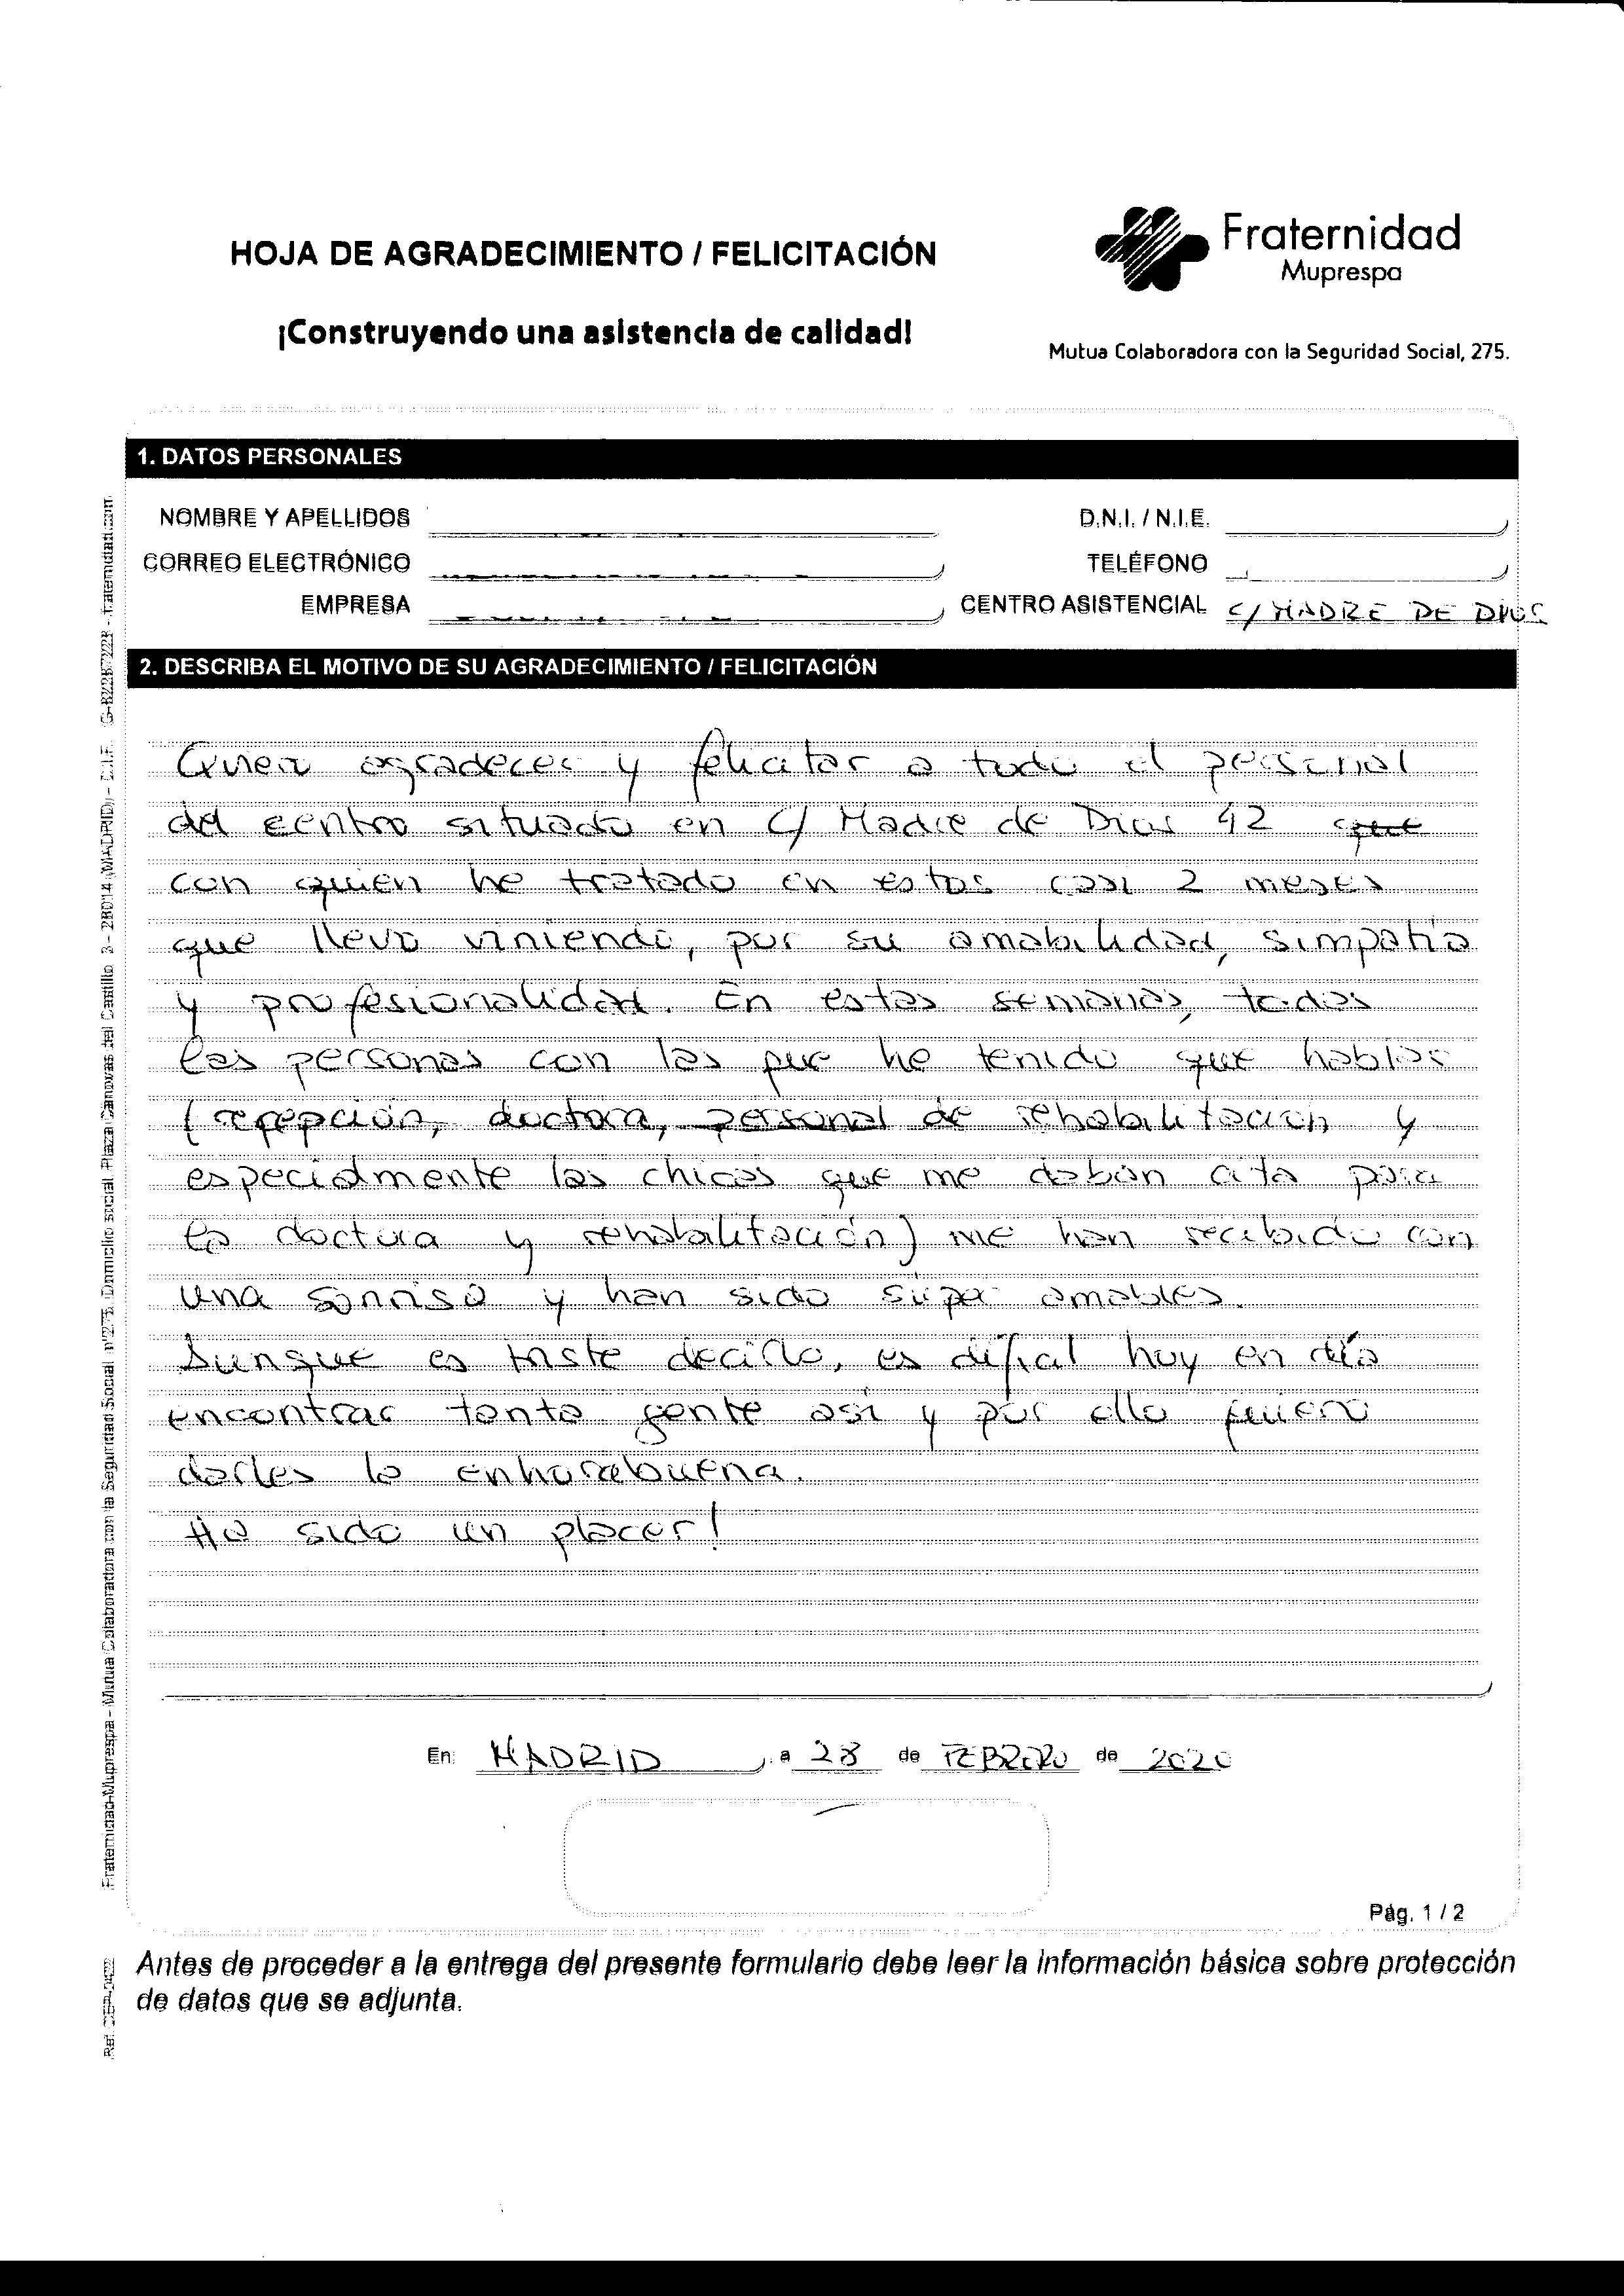 HOJA DE AGRADECIMIENTO / FELICITACIÓN
¡Construyendo una asistencia de calidad!
Fraternidad
Muprespa
Mutua Colaboradora con la Seguridad Social, 275.
1. DATOS PERSONALES
NOMBRE Y APELLIDOS
D.N.I. / N.I.E.
CORREO ELECTRÓNICO
TELÉFONO
EMPRESA
CENTRO ASISTENCIAL C/ MADRE DE DIOS
2. DESCRIBA EL MOTIVO DE SU AGRADECIMIENTO / FELICITACIÓN
Quiero agradecer y felicitar a todo el personal
del centro situado en C/ Madre de Dios 42 que
con quien he tratado en estos casi 2 meses
que llevo viniendo, por su amabilidad, simpatía
y profesionalidad. En estas semanas, todas
las personas con las que he tenido que hablar
(recepción, doctora, personal de rehabilitación y
especialmente las chicas que me daban cita para
la doctora y rehabilitación) me han recibido con
una sonrisa y han sido súper amables.
Aunque es triste decirlo, es difícil hoy en día
encontrar tanta gente así y por ello quiero
darles la enhorabuena.
Ha sido un placer!
En: MADRID, a 28 de FEBRERO de 2020
Pág. 1 / 2
Antes de proceder a la entrega del presente formulario debe leer la información básica sobre protección
de datos que se adjunta.
Fraternidad-Muprespa - Mutua Colaboradora con la Seguridad Social nº 275. Domicilio social: Plaza Cánovas del Castillo 3 - 28014 (MADRID) - C.I.F.